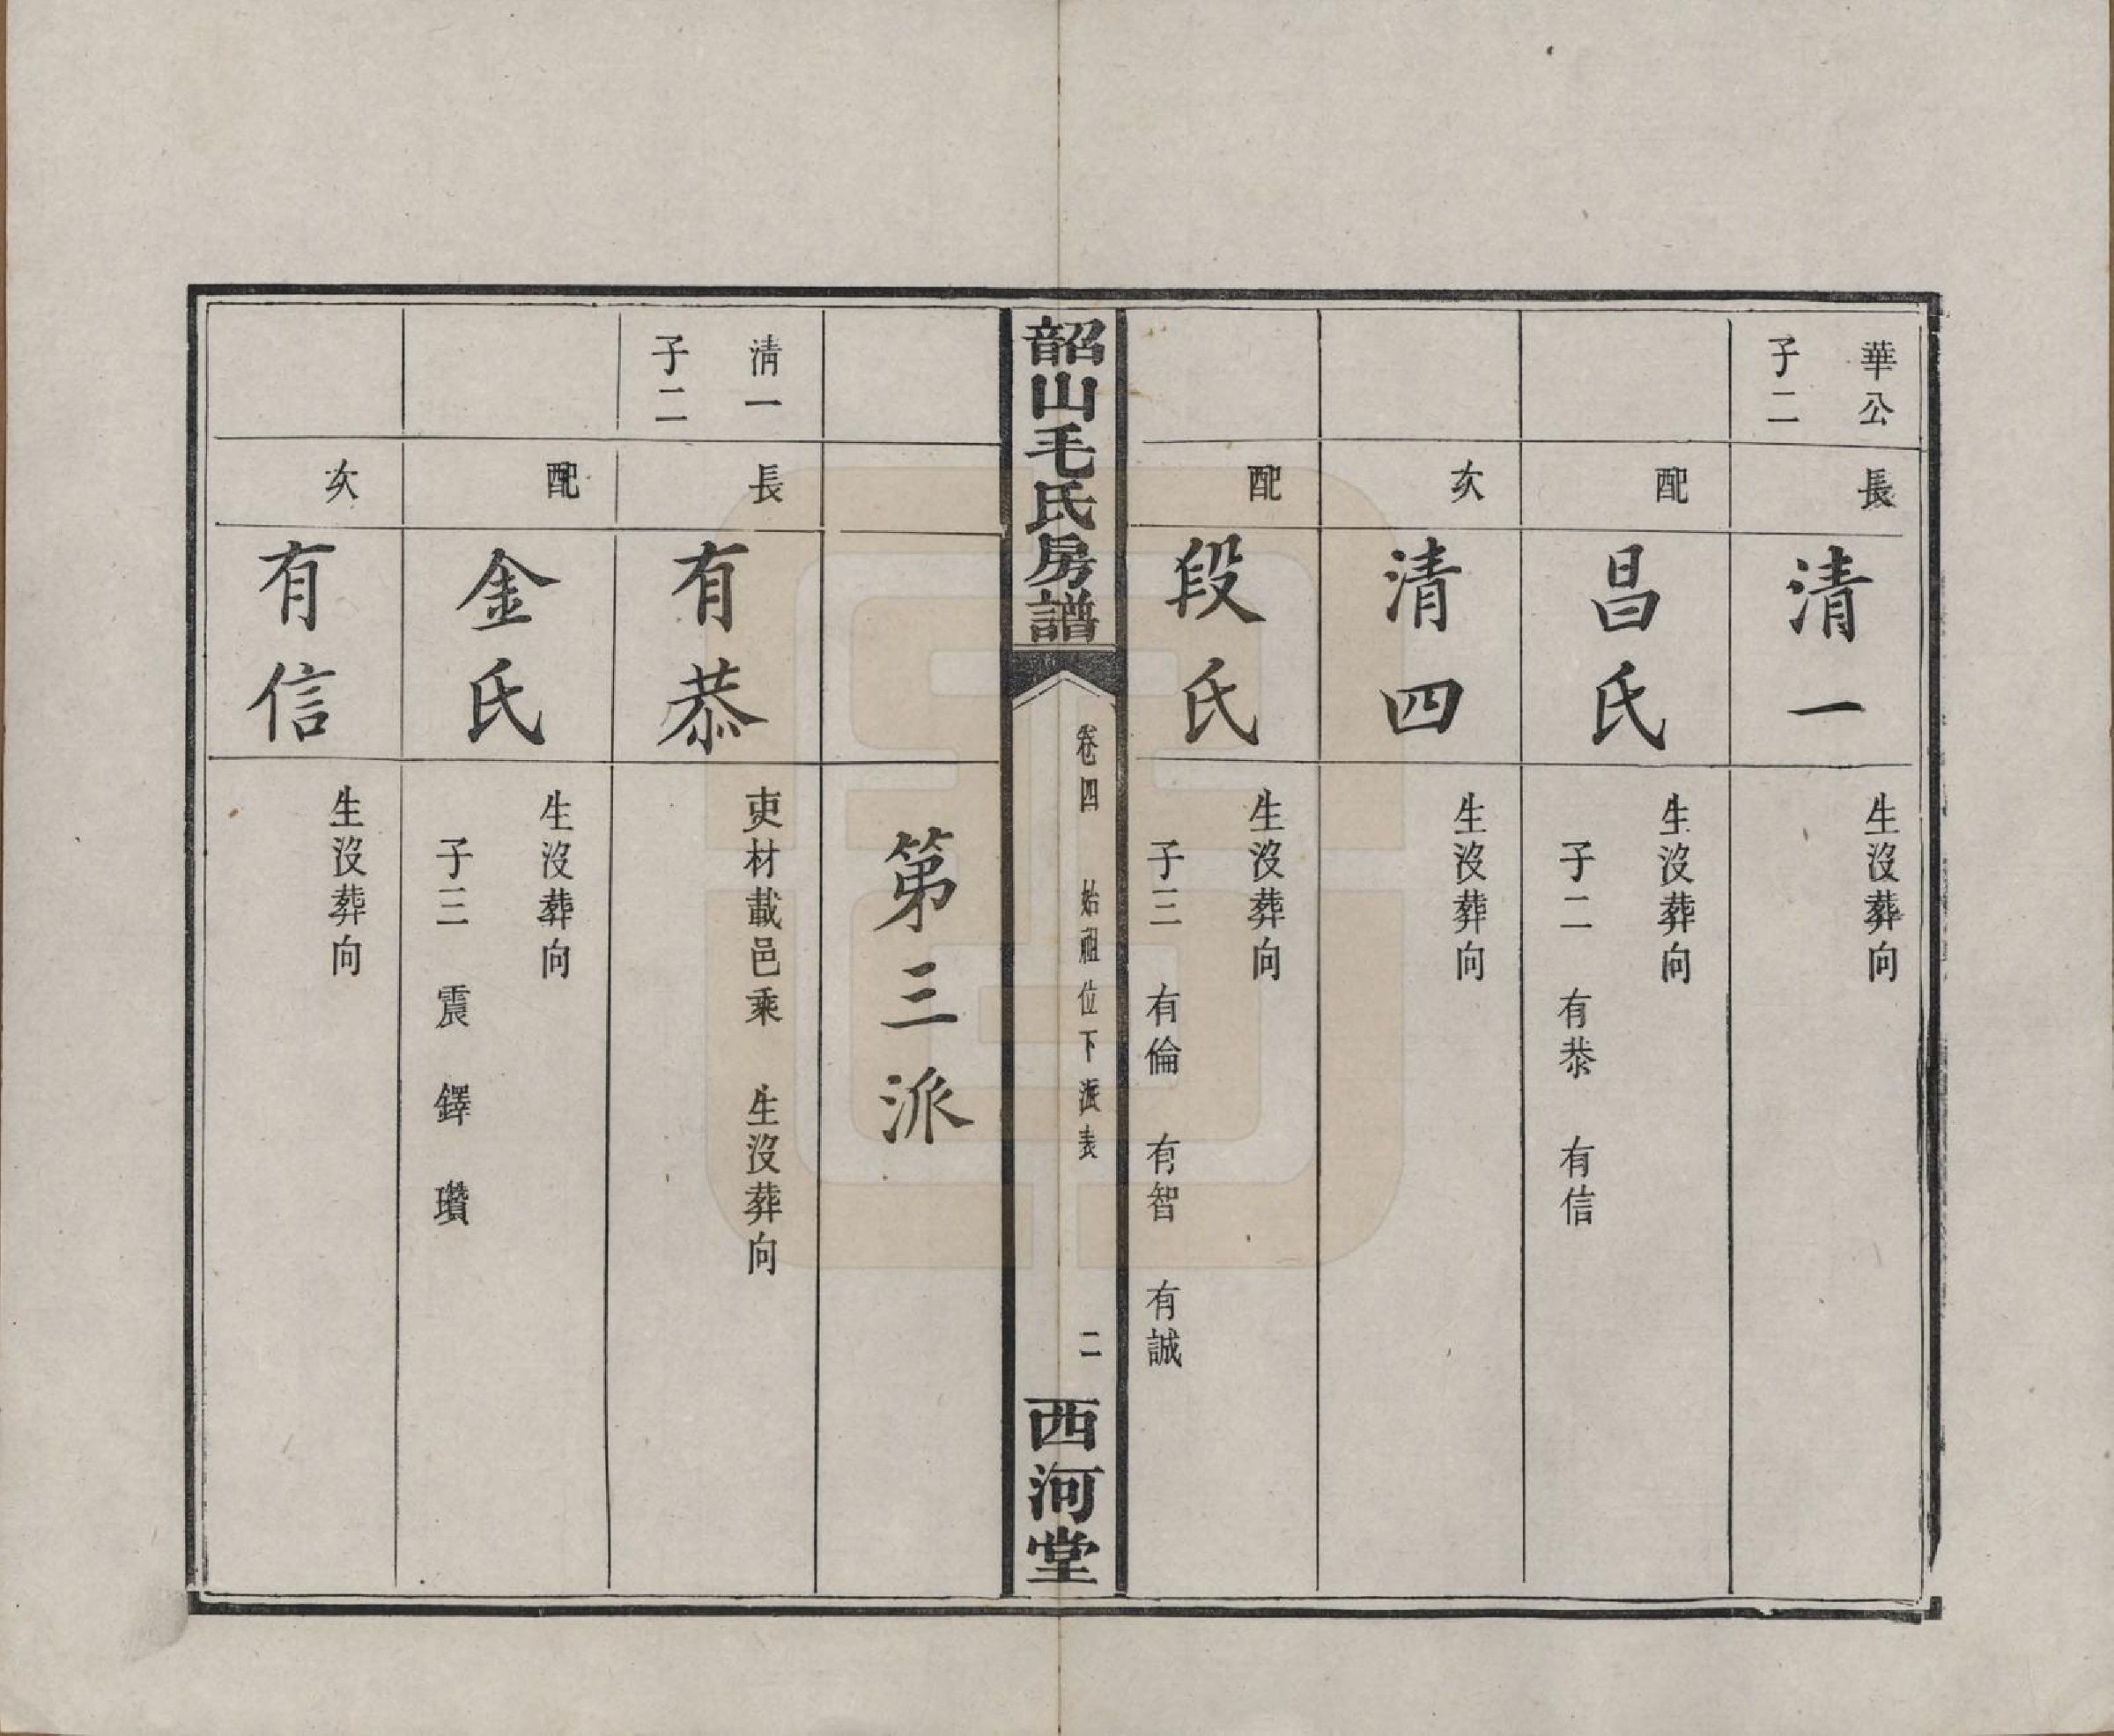 華公
子二
長
清一
生沒葬向
配
昌氏
生沒葬向
子二 有恭 有信
次
清四
生沒葬向
配
段氏
生沒葬向
子三 有倫 有智 有誠
韶山毛氏房譜
卷四 始祖位下派表
二
西河堂
第三派
清一
子二
長
有恭
吏材載邑乘 生沒葬向
配
金氏
生沒葬向
子三 震 鐸 瓚
次
有信
生沒葬向